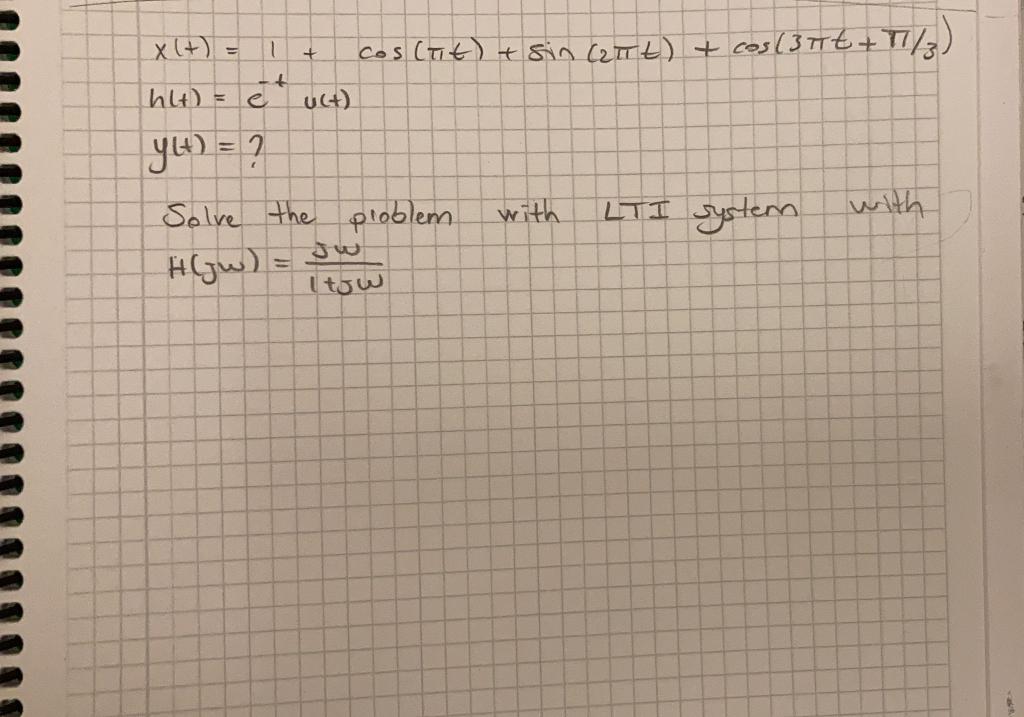 x(t) = 1 + cos(πt) + sin(2πt) + cos(3πt + π/3)
h(t) = e^-t u(t)
y(t) = ?
Solve the problem with LTI system with
H(jw) = jw / 1+jw